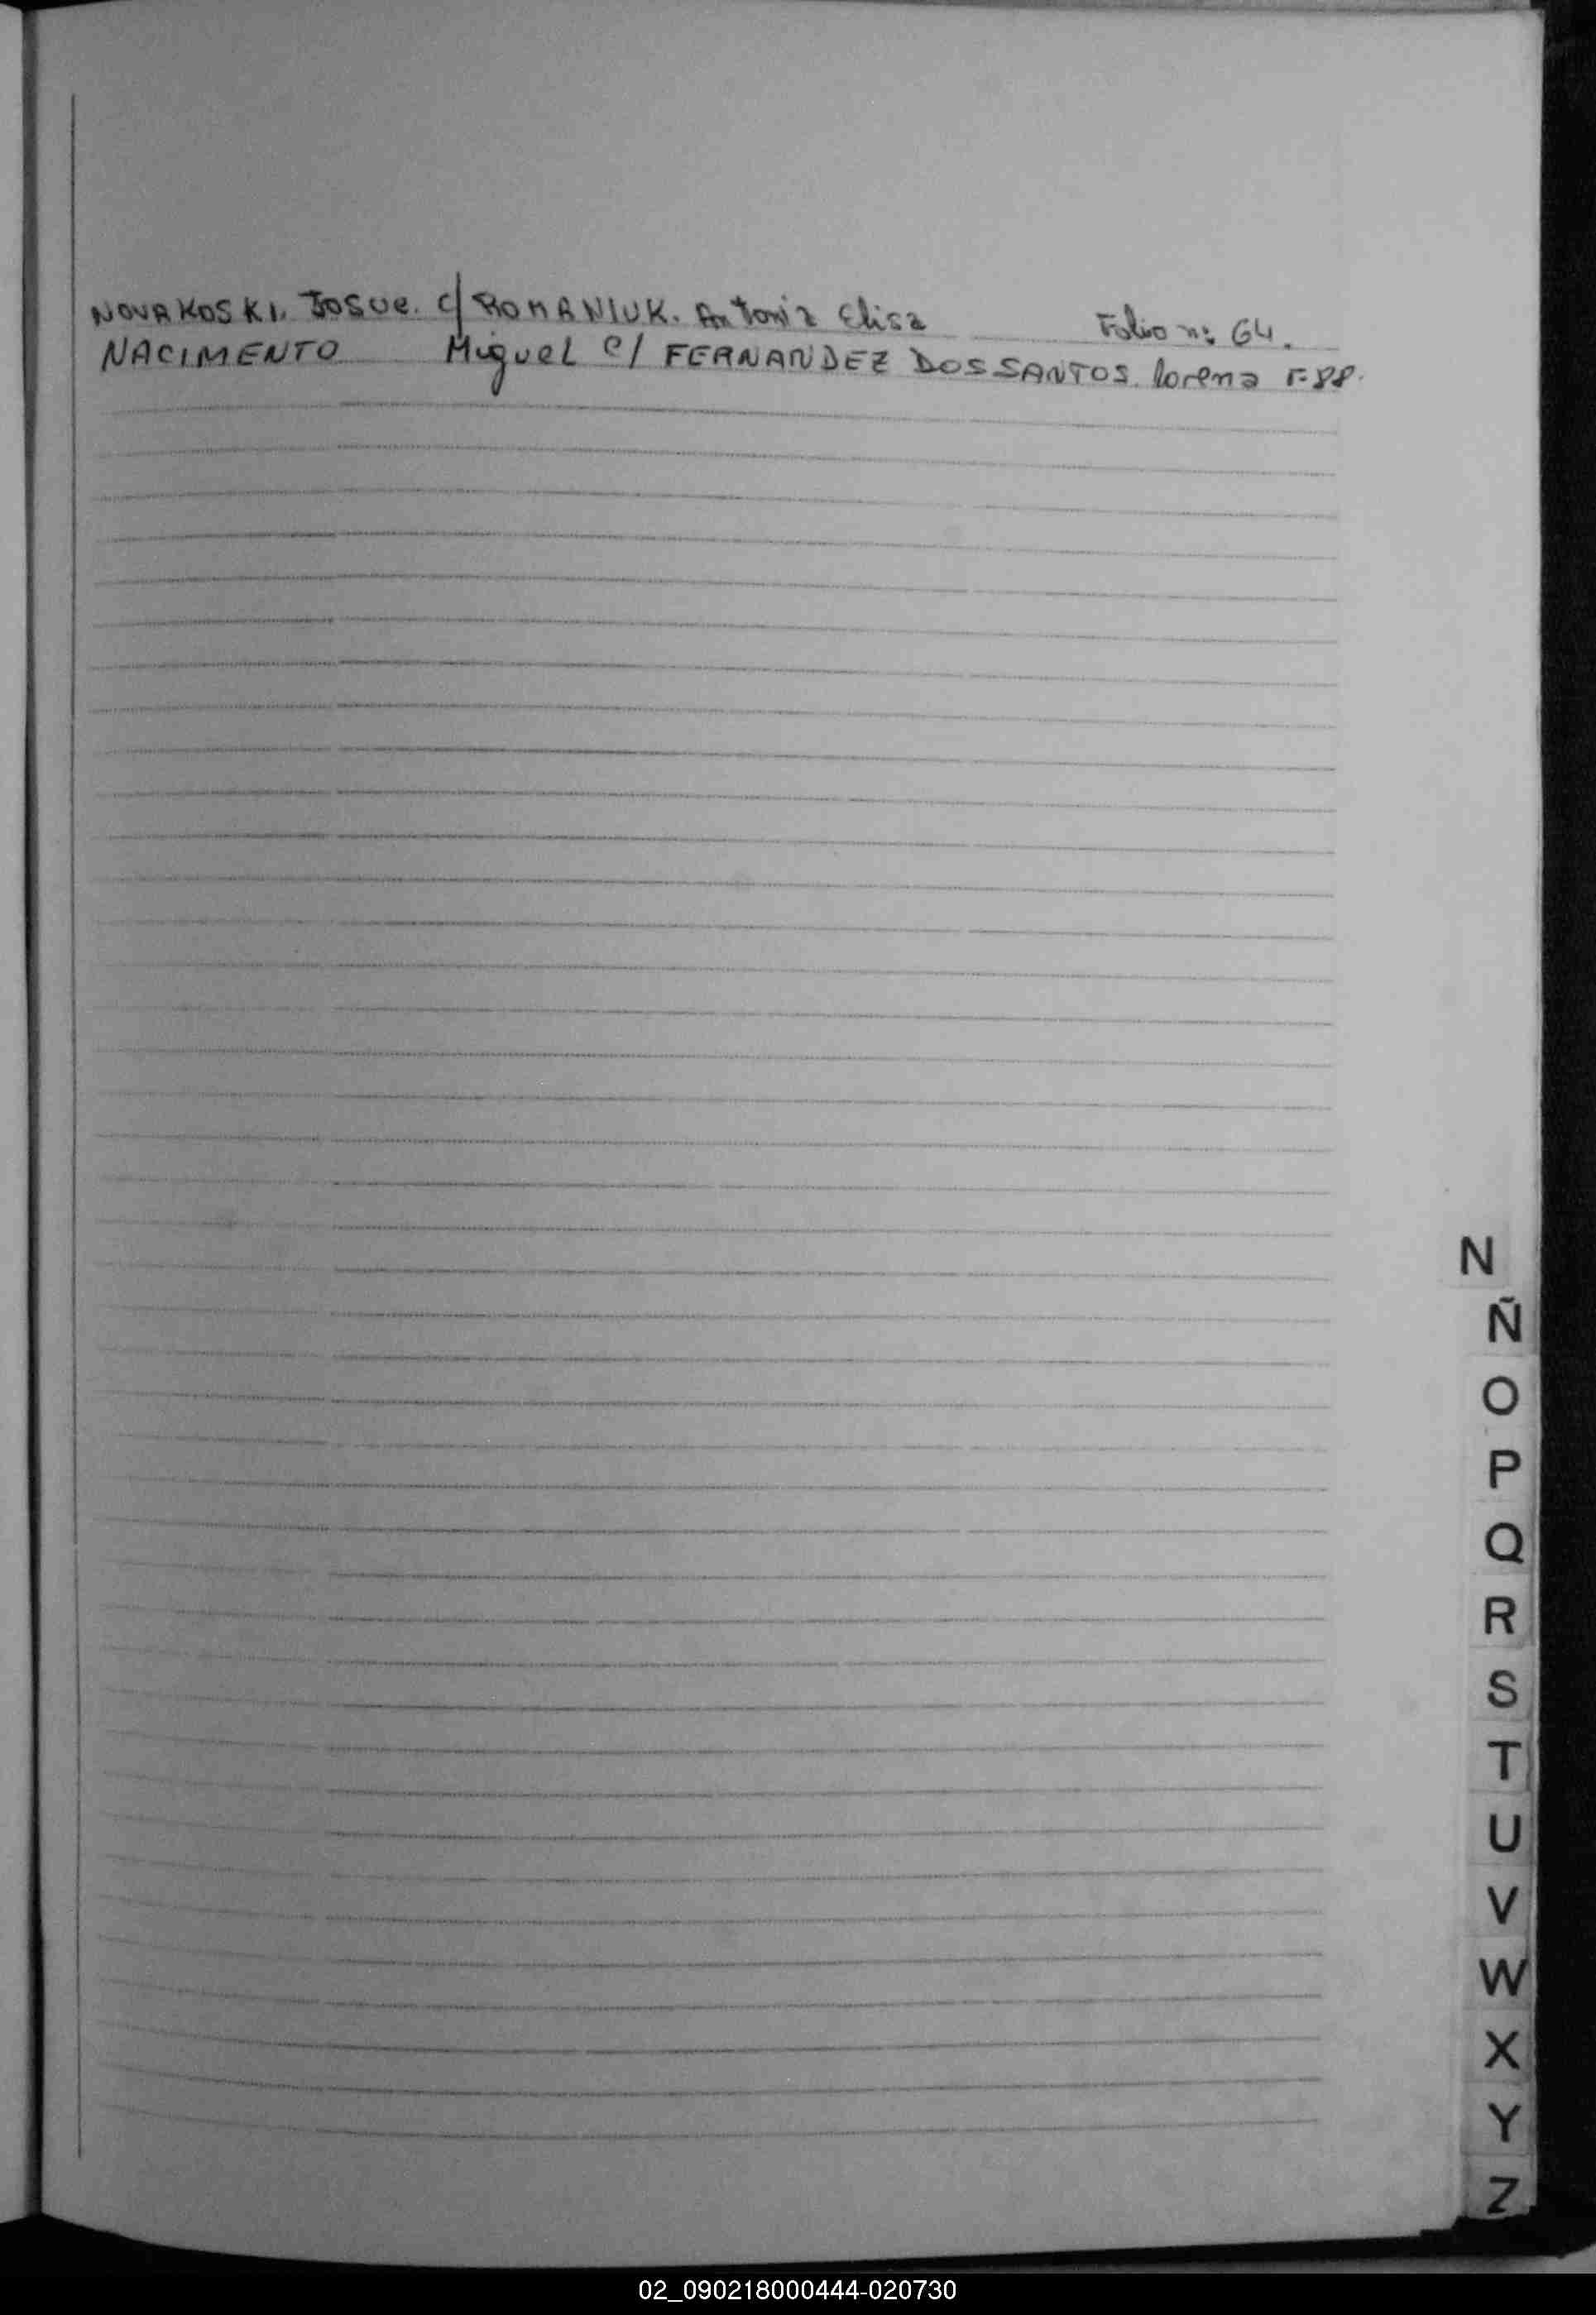 NOVAKOSKI, Josue. c/ ROMANIUK. Antonia Elisa Folio n: 64.
NACIMENTO Miguel c/ FERNANDEZ DOS SANTOS. lorena F-88.
N
Ñ
O
P
Q
R
S
T
U
V
W
X
Y
Z
02_090218000444-020730